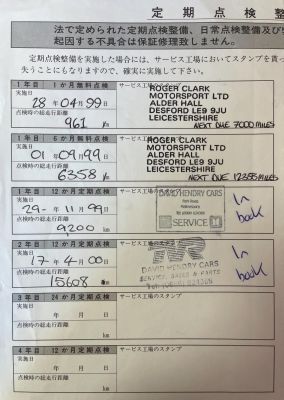 定期点検整
法で定められた定期点検整備、日常点検整備及び
起因する不具合は保証修理致しません。
定期点検整備を実施した場合には、サービス工場においてスタンプを貰っ
失うことにもなりますので、確実に実施して下さい。
1年目 1か月無料点検 サービス工場のスタンプ
28年 04月 99日
点検時の総走行距離
961 km
ROGER CLARK
MOTORSPORT LTD
ALDER HALL
DESFORD LE9 9JU
LEICESTERSHIRE
NEXT DUE 7000 MILES
1年目 6か月無料点検 サービス工場のスタンプ
01年 09月 99日
点検時の総走行距離
6358 km
ROGER CLARK
MOTORSPORT LTD
ALDER HALL
DESFORD LE9 9JU
LEICESTERSHIRE
NEXT DUE 12358 MILES
1年目 12か月定期点検 サービス工場のスタンプ
29年 11月 99日
点検時の総走行距離
9200 km
DAVID HENDRY CARS
SERVICE
In
book
2年目 12か月定期点検 サービス工場のスタンプ
17年 4月 00日
点検時の総走行距離
15608 km
TVR
DAVID HENDRY CARS
SERVICE, SALES & PARTS
In
book
3年目 24か月定期点検 サービス工場のスタンプ
年 月 日
点検時の総走行距離
km
4年目 12か月定期点検 サービス工場のスタンプ
年 月 日
点検時の総走行距離
km